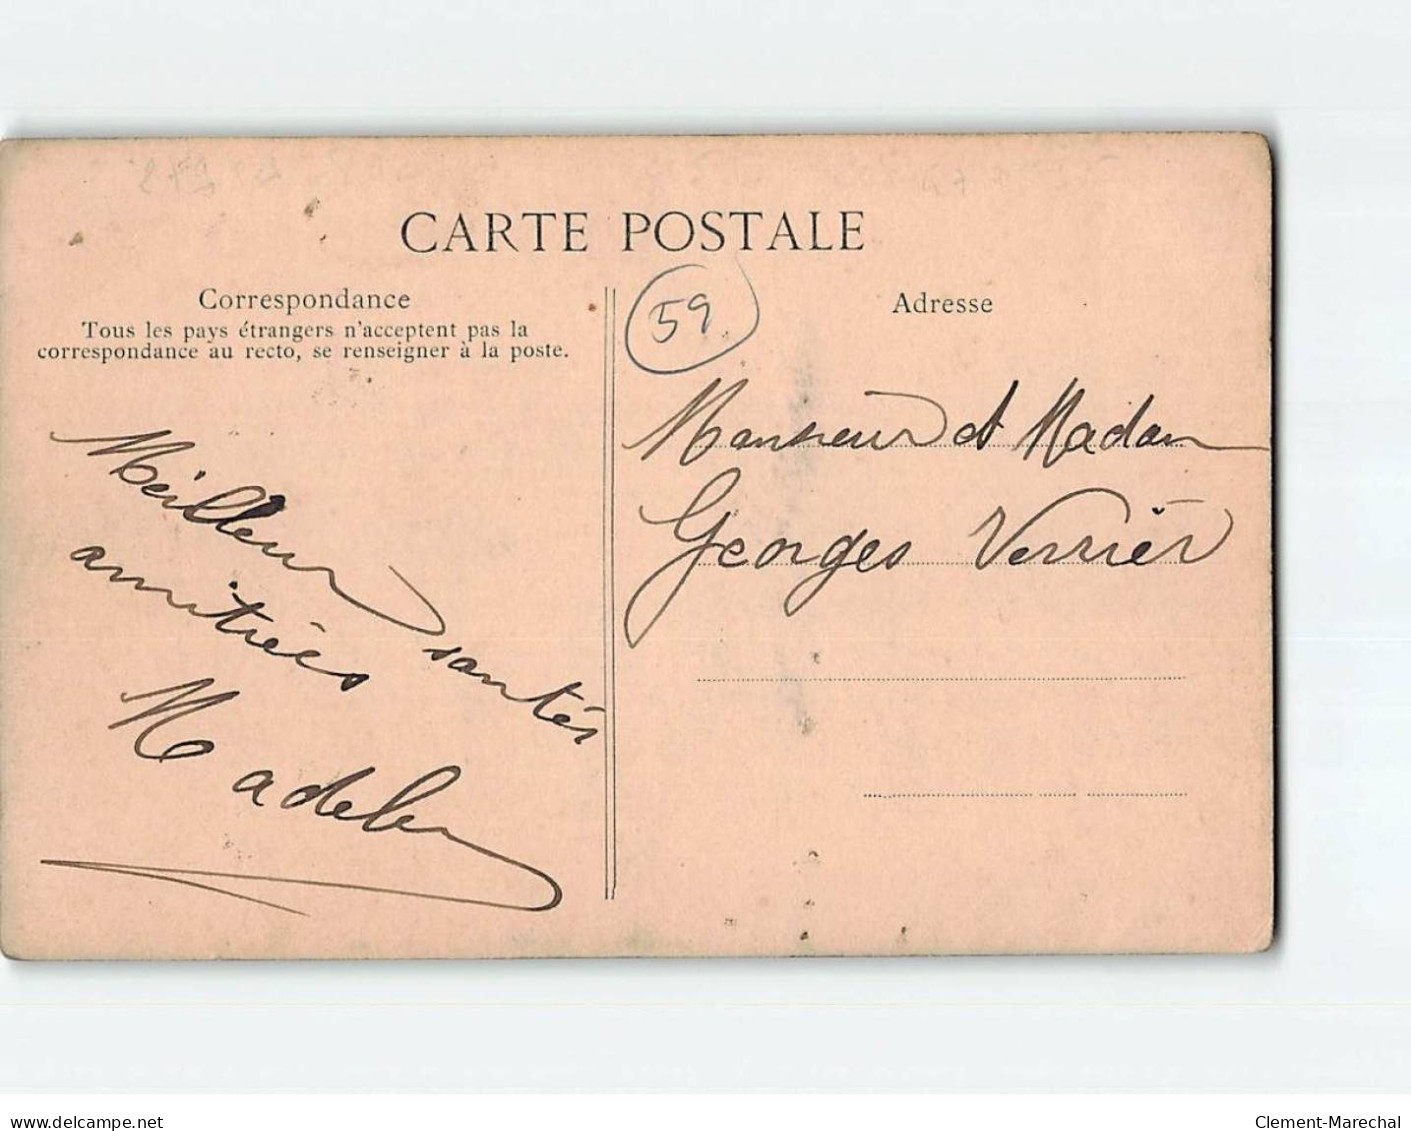 CARTE POSTALE
Correspondance
Tous les pays étrangers n'acceptent pas la
correspondance au recto, se renseigner à la poste.
Meilleur santés
amitiées
Madelen
59
Adresse
Monsieur et Madam
Georges Verrier
www.delcampe.net
Clement-Marechal